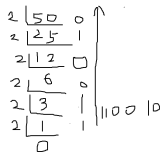 2 50 0
2 25 1
2 12 0
2 6 0
2 3 1
2 1 1
0
1100 10